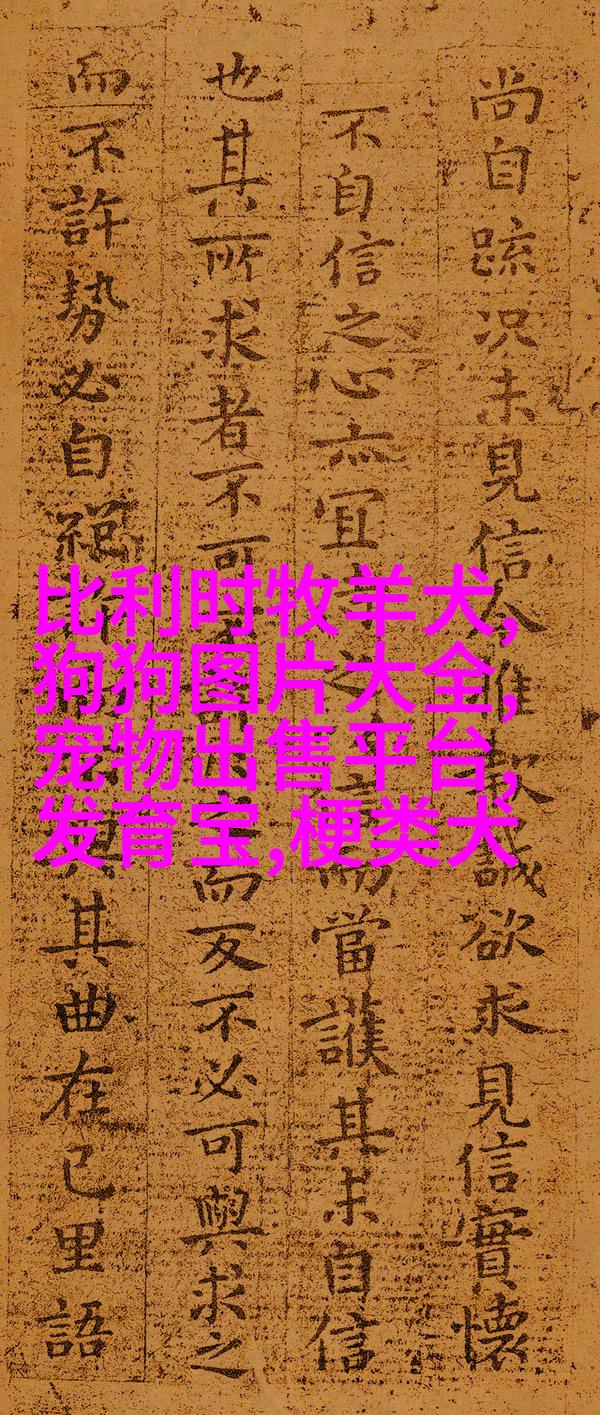 尚自疏况未見信今推款誠欲求見信實懷
不自信之心亦宜待之信而當護其未自信
也其所求者不可之而反不必可與求之
而不許勢必自絕與其曲在己里語
比利时牧羊犬,
狗狗图片大全,
宠物出售平台,
发育宝,梗类犬